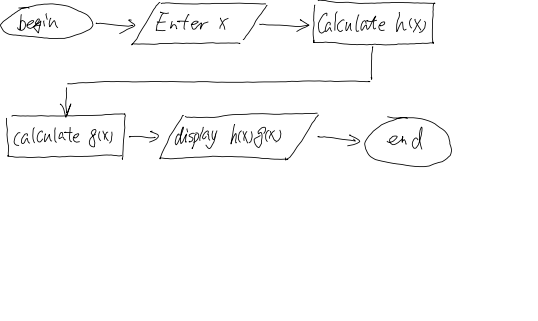 begin
Enter x
Calculate h(x)
calculate g(x)
display h(x)g(x)
end